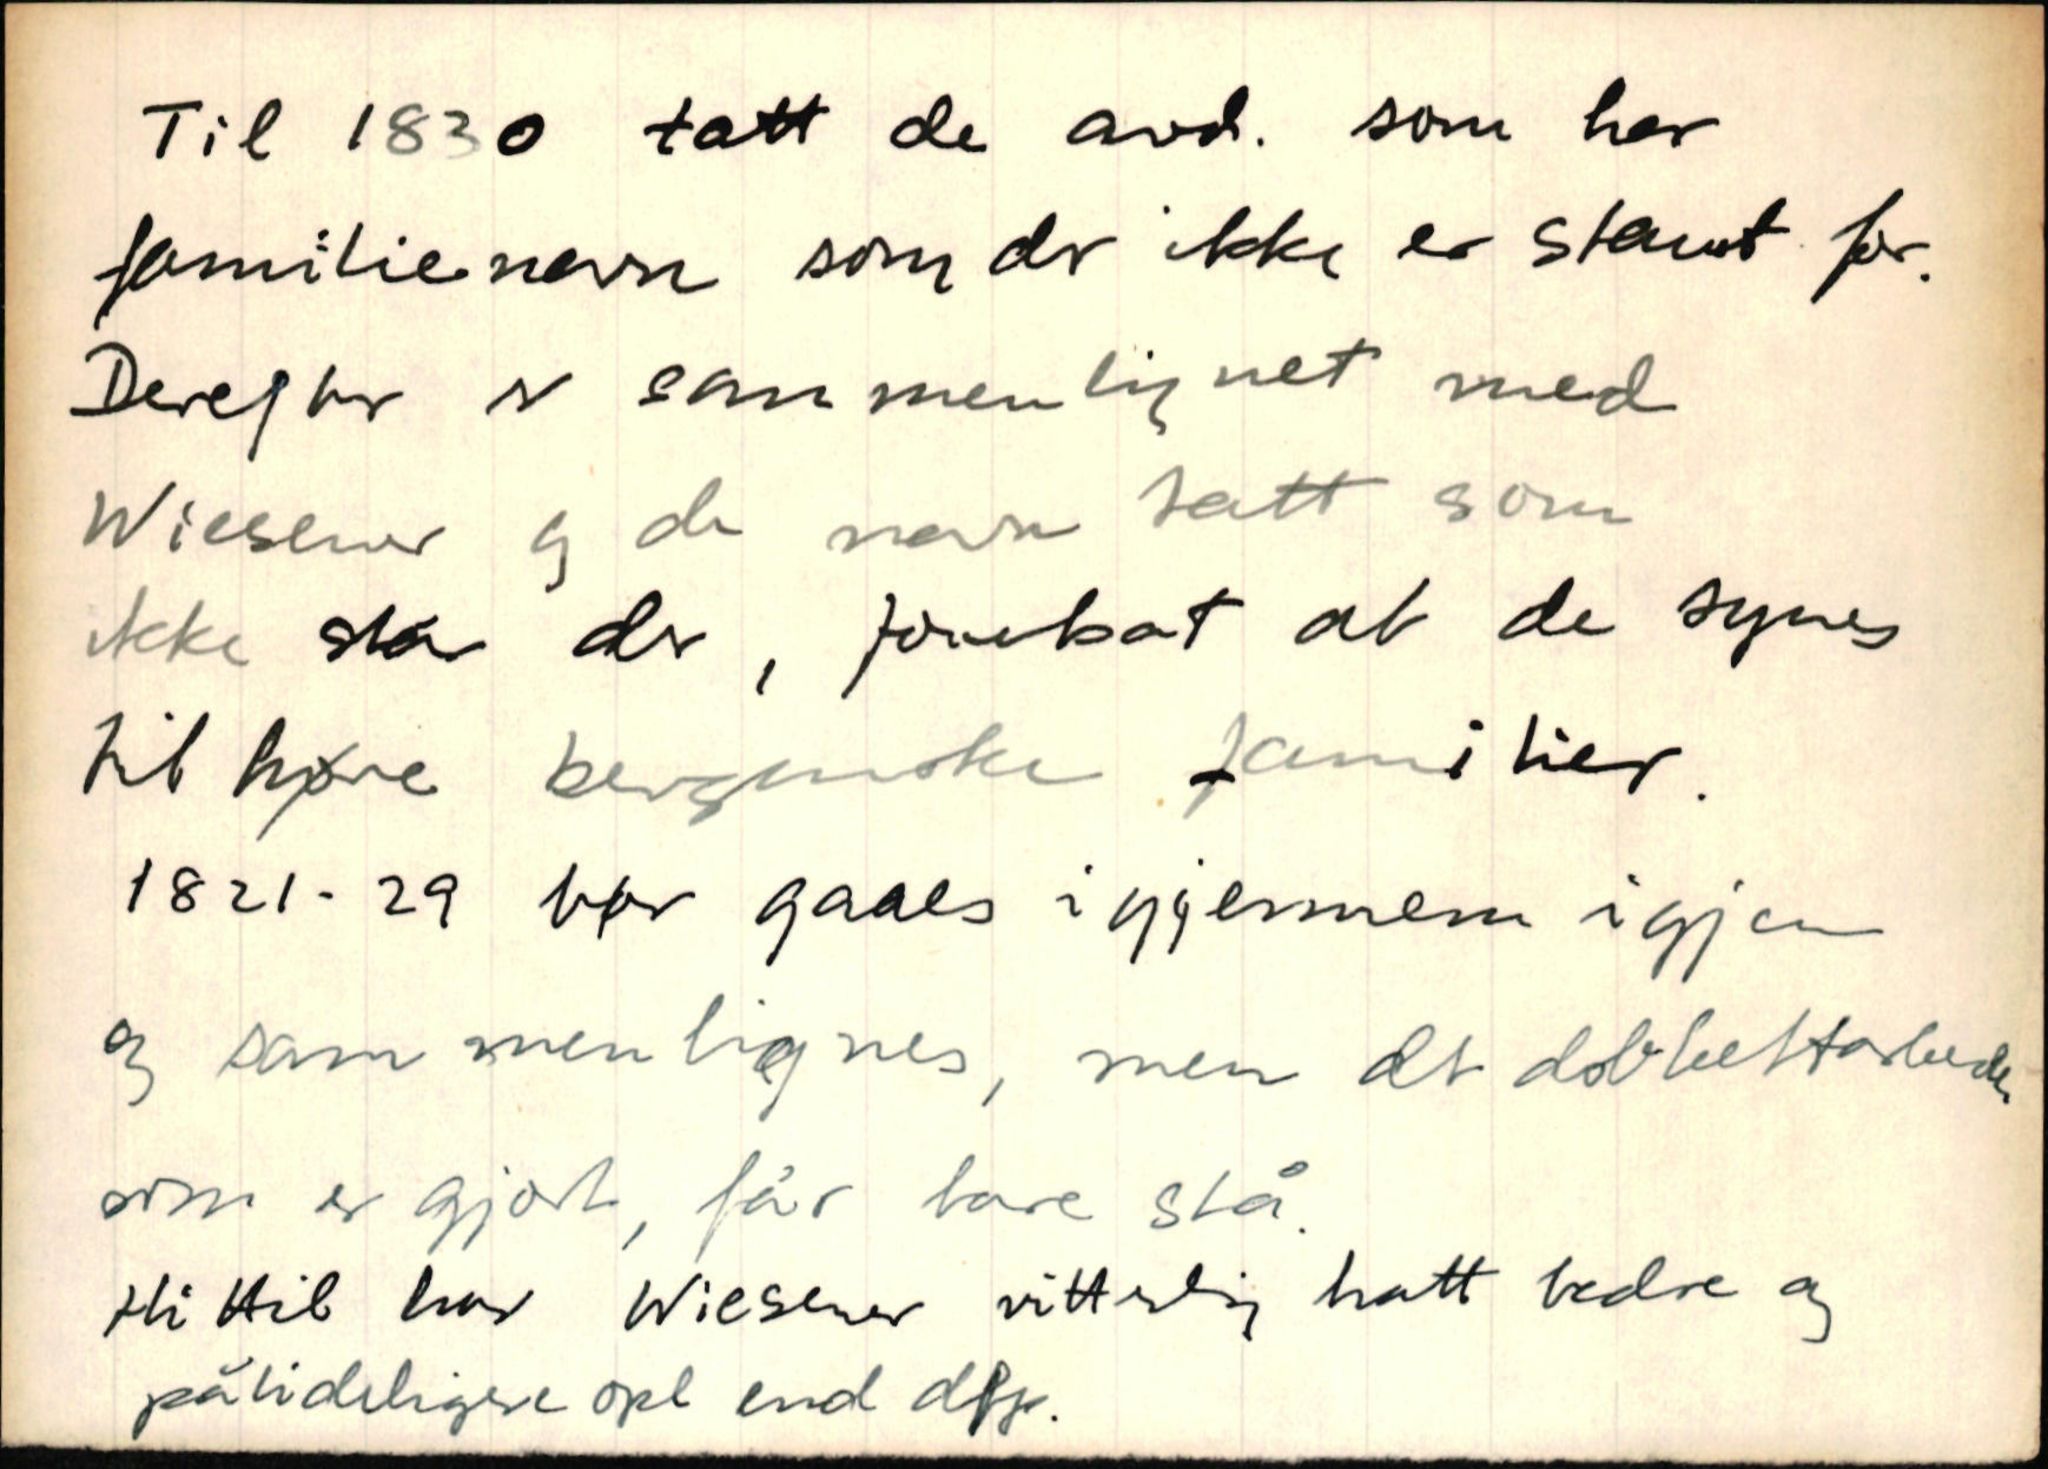 Til 1830 tatt de avd. som har
familienavn som der ikke er stavet for.
Derefter er sammenlignet med
Wiesener og de navn tatt som
ikke står der, forutsat at de synes
tilhøre bergenske familier.
1821-29 bør gaaes igjennem igjen
og sammenlignes, men det dobbeltarbeide
som er gjort, får bare stå.
Hittil har Wiesener vitterlig hatt bedre og
påtideligere opl end dfp.